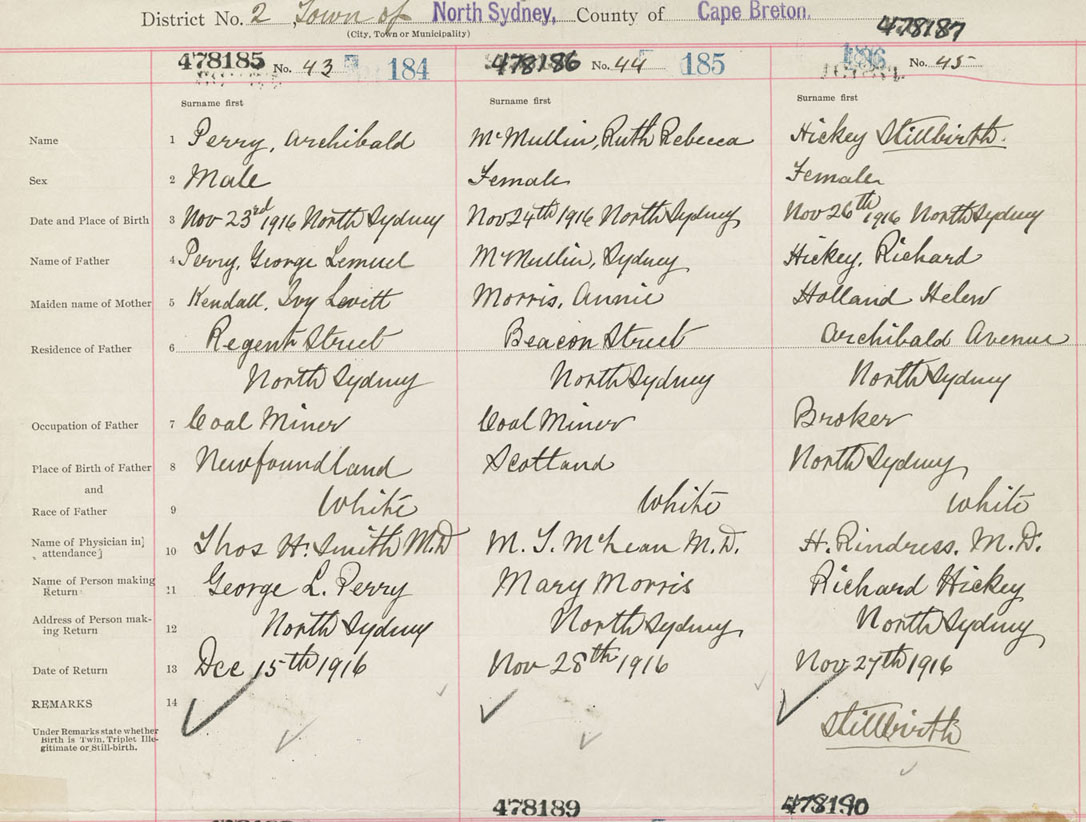 District No. 2, Town of North Sydney, County of Cape Breton.
(City, Town or Municipality)
478187
478185 No. 43 184 478186 No. 44 185 186 No. 45
Surname first Surname first Surname first
Name 1 Perry, Archibald McMullin, Ruth Rebecca Hickey Stillbirth.
Sex 2 Male Female Female
Date and Place of Birth 3 Nov 23rd 1916 North Sydney Nov 24th 1916 North Sydney Nov 26th 1916 North Sydney
Name of Father 4 Perry, George Lemuel McMullin, Sydney Hickey, Richard
Maiden name of Mother 5 Kendall, Ivy Levitt Morris, Annie Holland Helen
Residence of Father 6 Regent Street Beacon Street Archibald Avenue
North Sydney North Sydney North Sydney
Occupation of Father 7 Coal Miner Coal Miner Broker
Place of Birth of Father 8 Newfoundland Scotland North Sydney
and
Race of Father 9 White White White
Name of Physician in attendance} 10 Thos H. Smith M.D M. T. McLean M.D. H. Rindress. M.D.
Name of Person making Return 11 George L. Perry Mary Morris Richard Hickey
Address of Person making Return 12 North Sydney North Sydney North Sydney
Date of Return 13 Dec 15th 1916 Nov 28th 1916 Nov 27th 1916
REMARKS 14
Under Remarks state whether Birth is Twin, Triplet Illegitimate or Still-birth.
Stillbirth
478189 478190